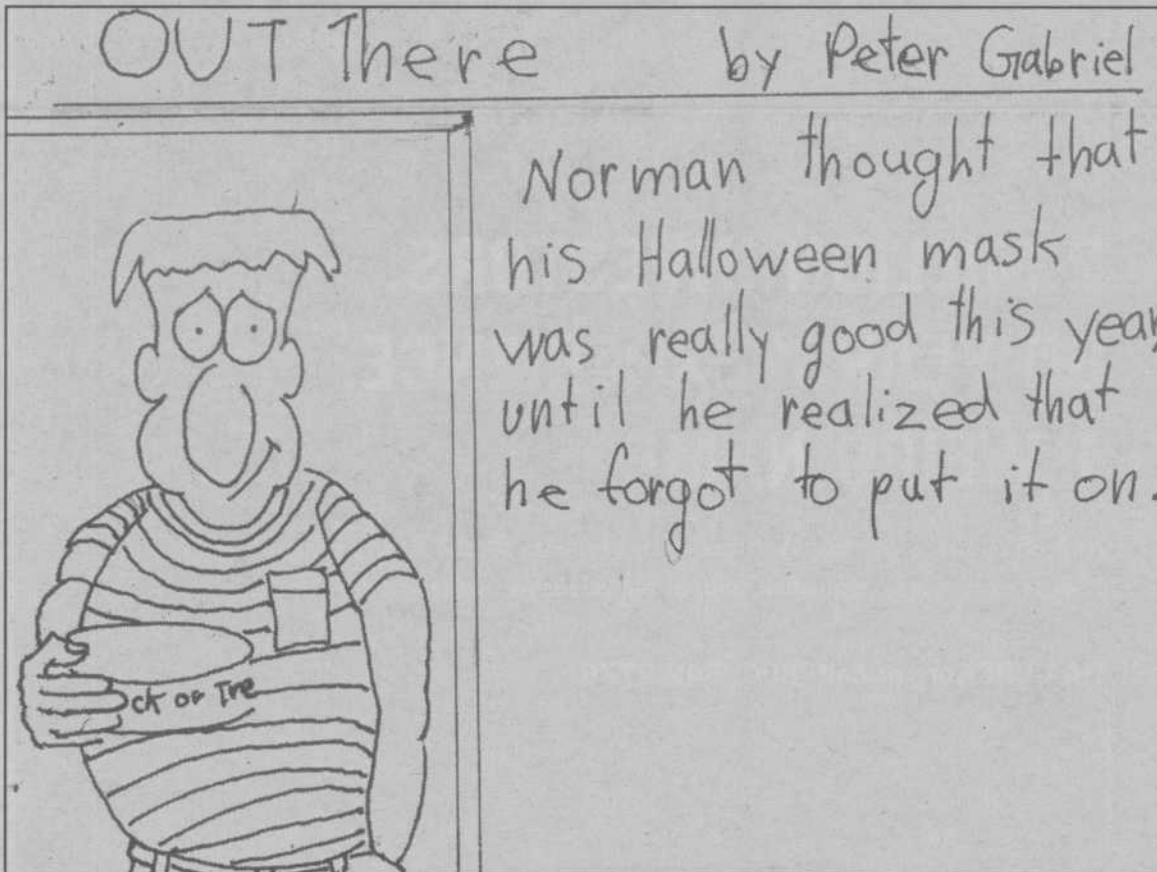 OUT There by Peter Gabriel
Norman thought that
his Halloween mask
was really good this year,
until he realized that
he forgot to put it on.
ck or Tre